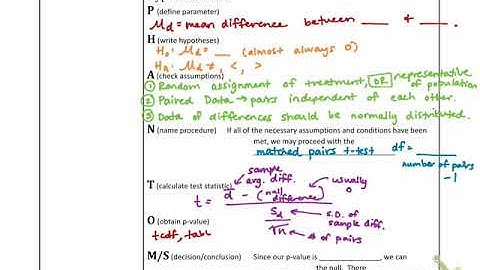 P (define parameter)
μd = mean difference between ___ & ___.
H (write hypotheses)
H₀: μd = ___ (almost always 0)
Hₐ: μd ≠, <, >
A (check assumptions)
① Random assignment of treatment, OR representative of population
② Paired Data → pairs independent of each other.
③ Data of differences should be normally distributed.
N (name procedure) If all of the necessary assumptions and conditions have been
met, we may proceed with the
matched pairs t-test df = ___
number of pairs
-1
sample
avg. diff.
usually
0
T (calculate test statistic)
t = d̄ - (null difference)
sd
√n
S.D. of
sample diff.
# of pairs
O (obtain p-value)
tcdf, table
M/S (decision/conclusion) Since our p-value is ___, we can
the null. There